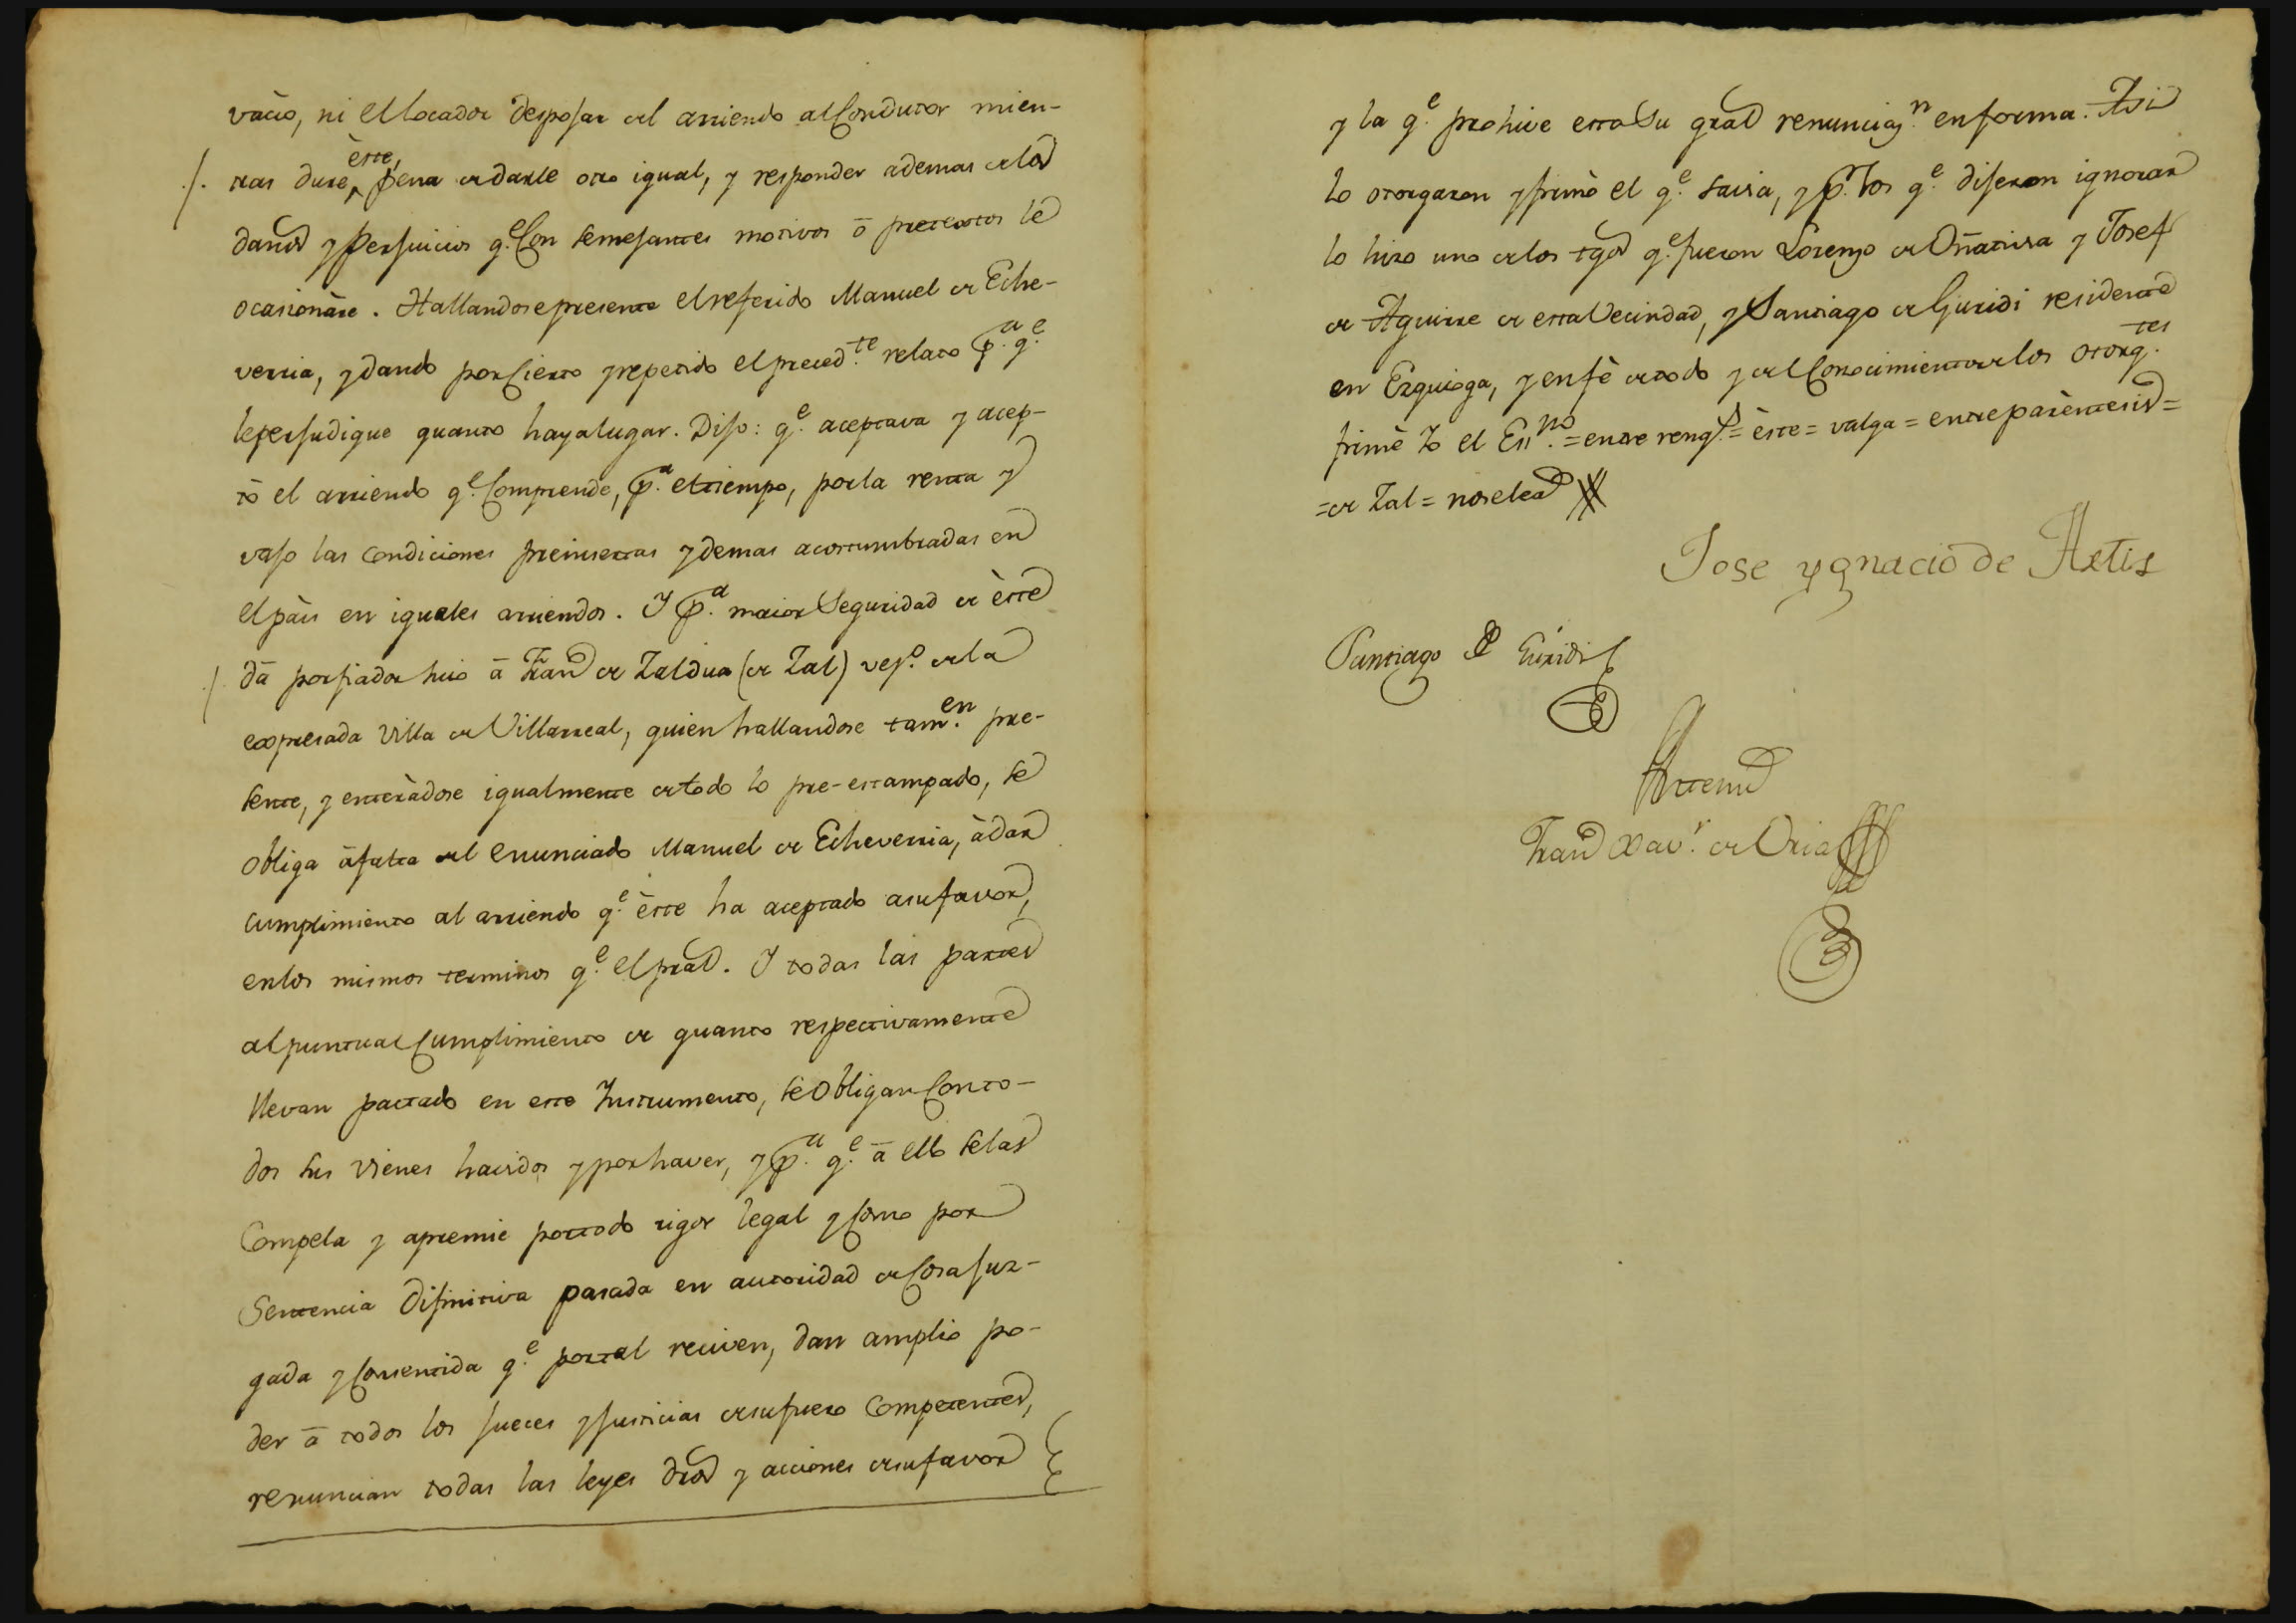 vacio, ni el locador desposar del arriendo al Condutor mien-
tras dure, este, pena de darle otro igual, y responder ademas de los
daños y Perjuicios q.e Con semejantes motivos ó pretextos le
ocasionáre. Hallandose presente el referido Manuel de Eche-
verria, y dando por Cierto y repetido el preced.te relato p.a q.e
le perjudique quanto haya lugar. Dijo: q.e aceptava y acep-
tó el arriendo q.e Comprende, p.a el tiempo, por la renta y
vajo las condiciones preinsertas y demas acostumbradas en
el páis en iguales arriendos. Y p.a maior Seguridad de éste
dá por fiador suio á Fran.co de Zaldua (de Zal) vej.o de la
expresada Villa de Villarreal, quien hallandose tam.en pre-
sente, y enterádose igualmente de todo lo pre-estampado, se
obliga á falta del enunciado Manuel de Echeverria, á dar
cumplimiento al arriendo q.e éste ha aceptado a su favor,
en los mismos terminos q.e el pral. Y todas las partes
al puntual Cumplimiento de quanto respectivamente
llevan pactado en este Instrumento, se obligan Con to-
dos sus vienes havidos y por haver, y p.a q.e á ello se las
Compela y apremie por todo rigor legal y Como por
Sentencia Difinitiva pasada en autoridad de Cosa juz-
gada y Consentida q.e por tal reciven, dan amplio po-
der á todos los jueces y justicias de su fuero Competentes,
renuncian todas las leyes dros y acciones de su favor
y la q.e prohive esta Su gral renunciaz.n en forma. Asi
lo otorgaron y firmó el q.e savia, y p.r los q.e dijeron ignorar
lo hizo uno de los tgos q.e fueron Lorenzo de Oñativia y Josef
de Aguirre de esta Vecindad, y Santiago de Guridi residente
en Ezquioga, y en fé de todo y del Conocimiento de los otorg.tes
firmé Yo el Ess.no = entre reng.s = éste = valga = entre paréntesis =
= de Zal = no se lea
Jose ygnacio de Artiz
Santiago de Guridi
Ante mi
Fran.co Xav.r de Oria